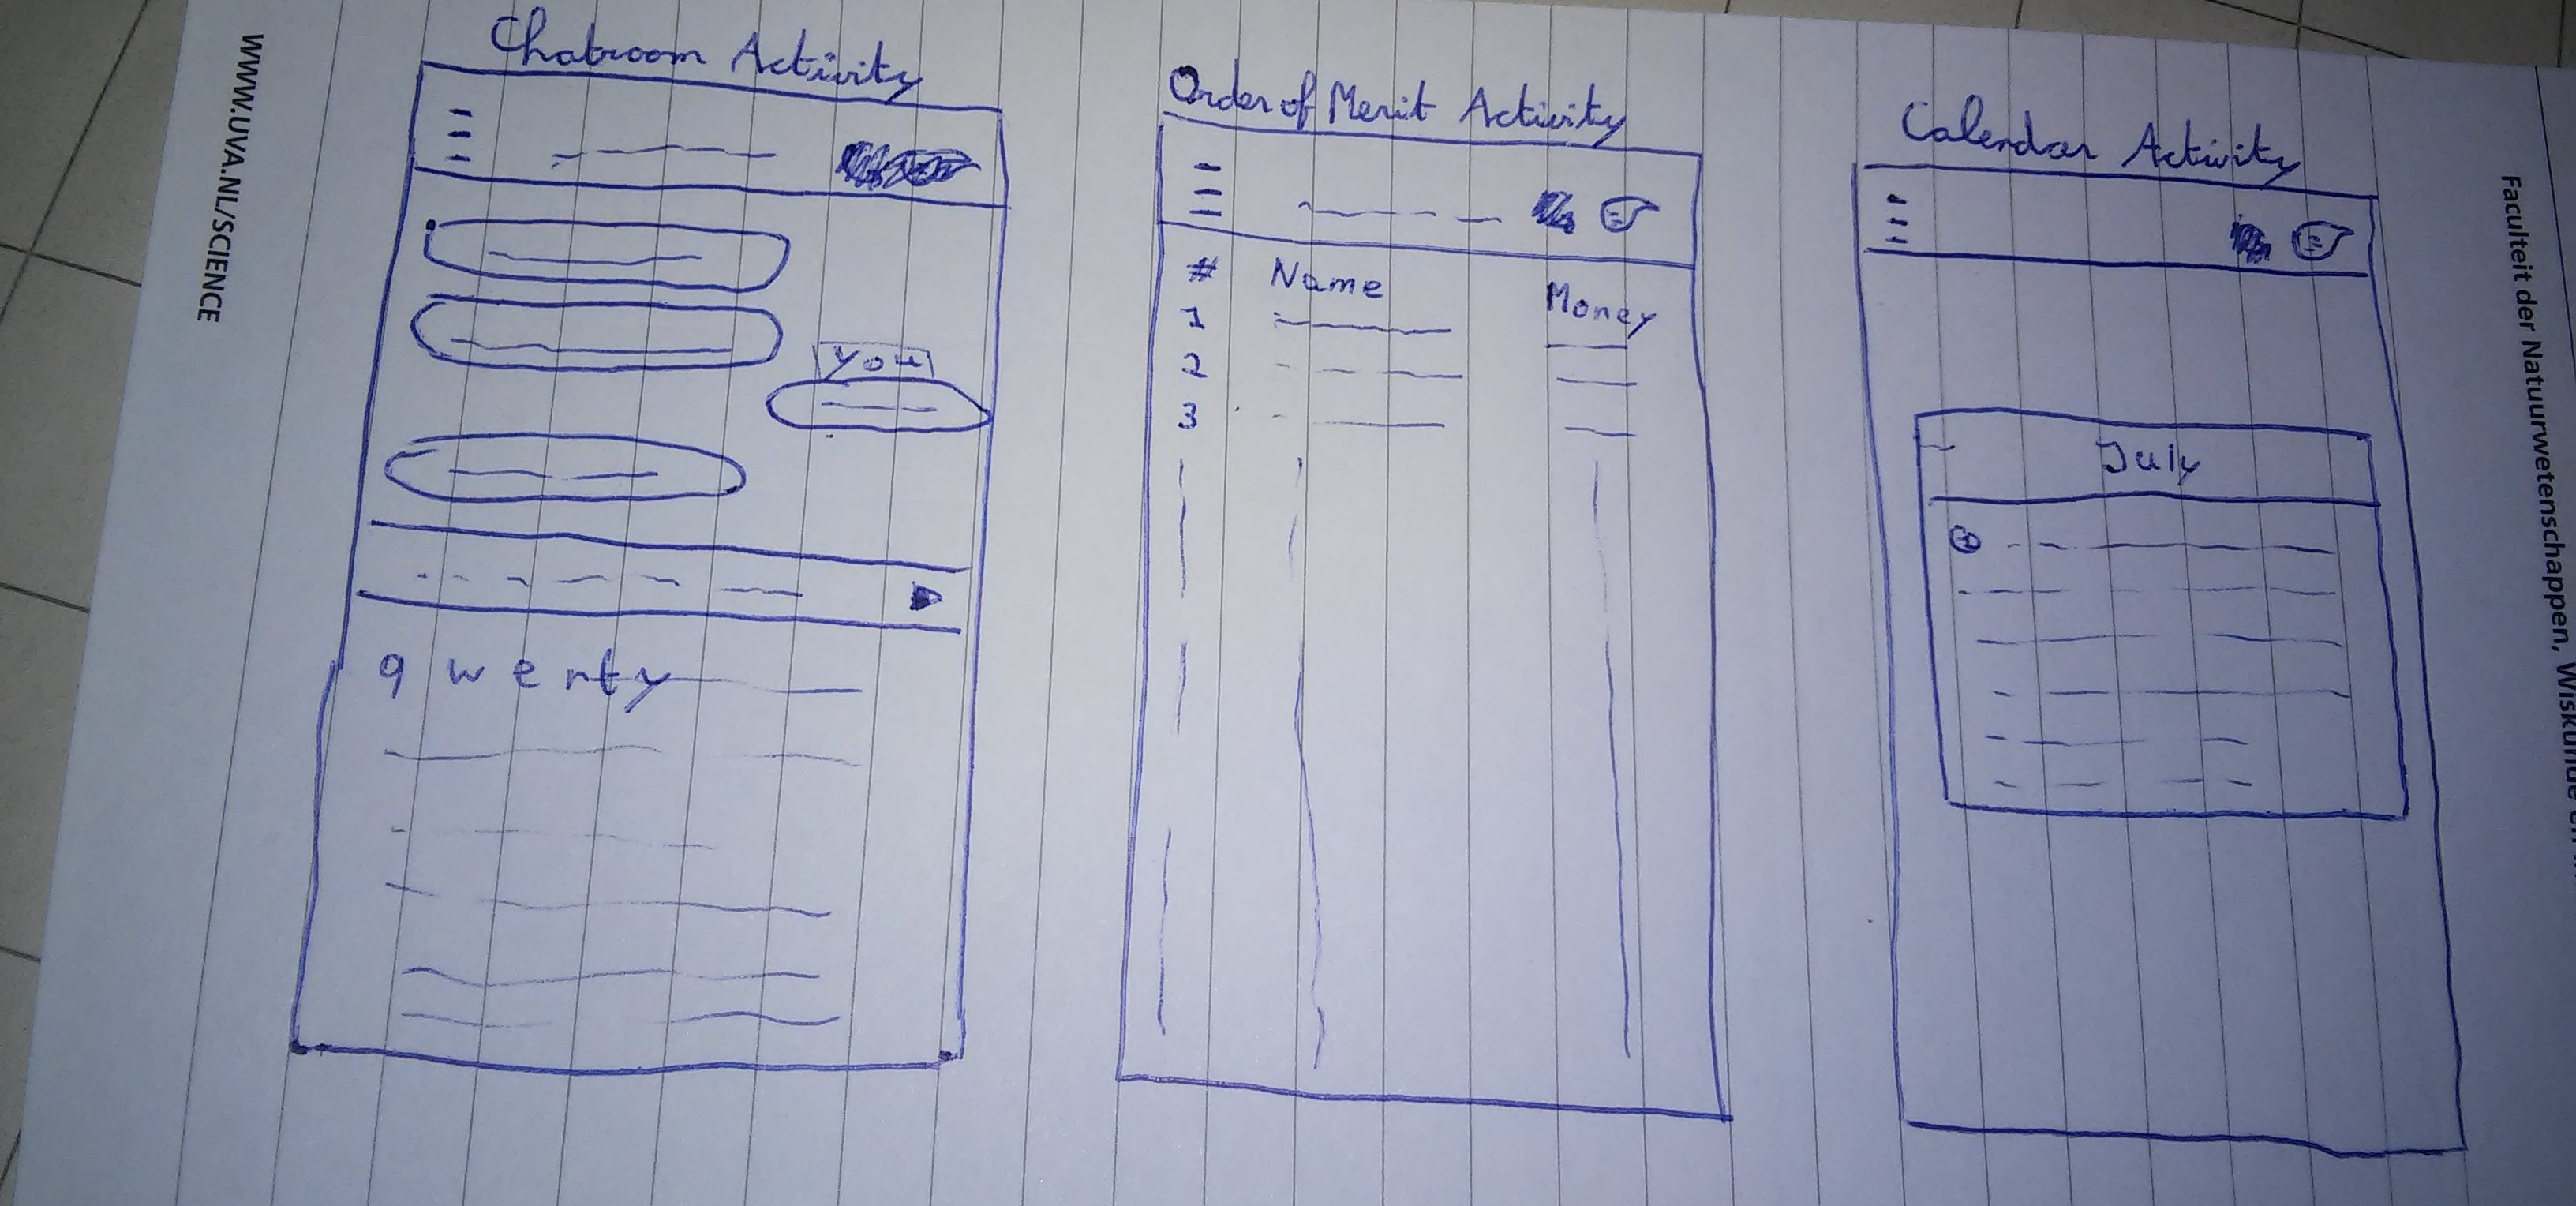 WWW.UVA.NL/SCIENCE
Chatroom Activity
you
q w e r t y
Order of Merit Activity
# Name Money
1
2
3
Calendar Activity
July
Faculteit der Natuurwetenschappen, Wiskunde en